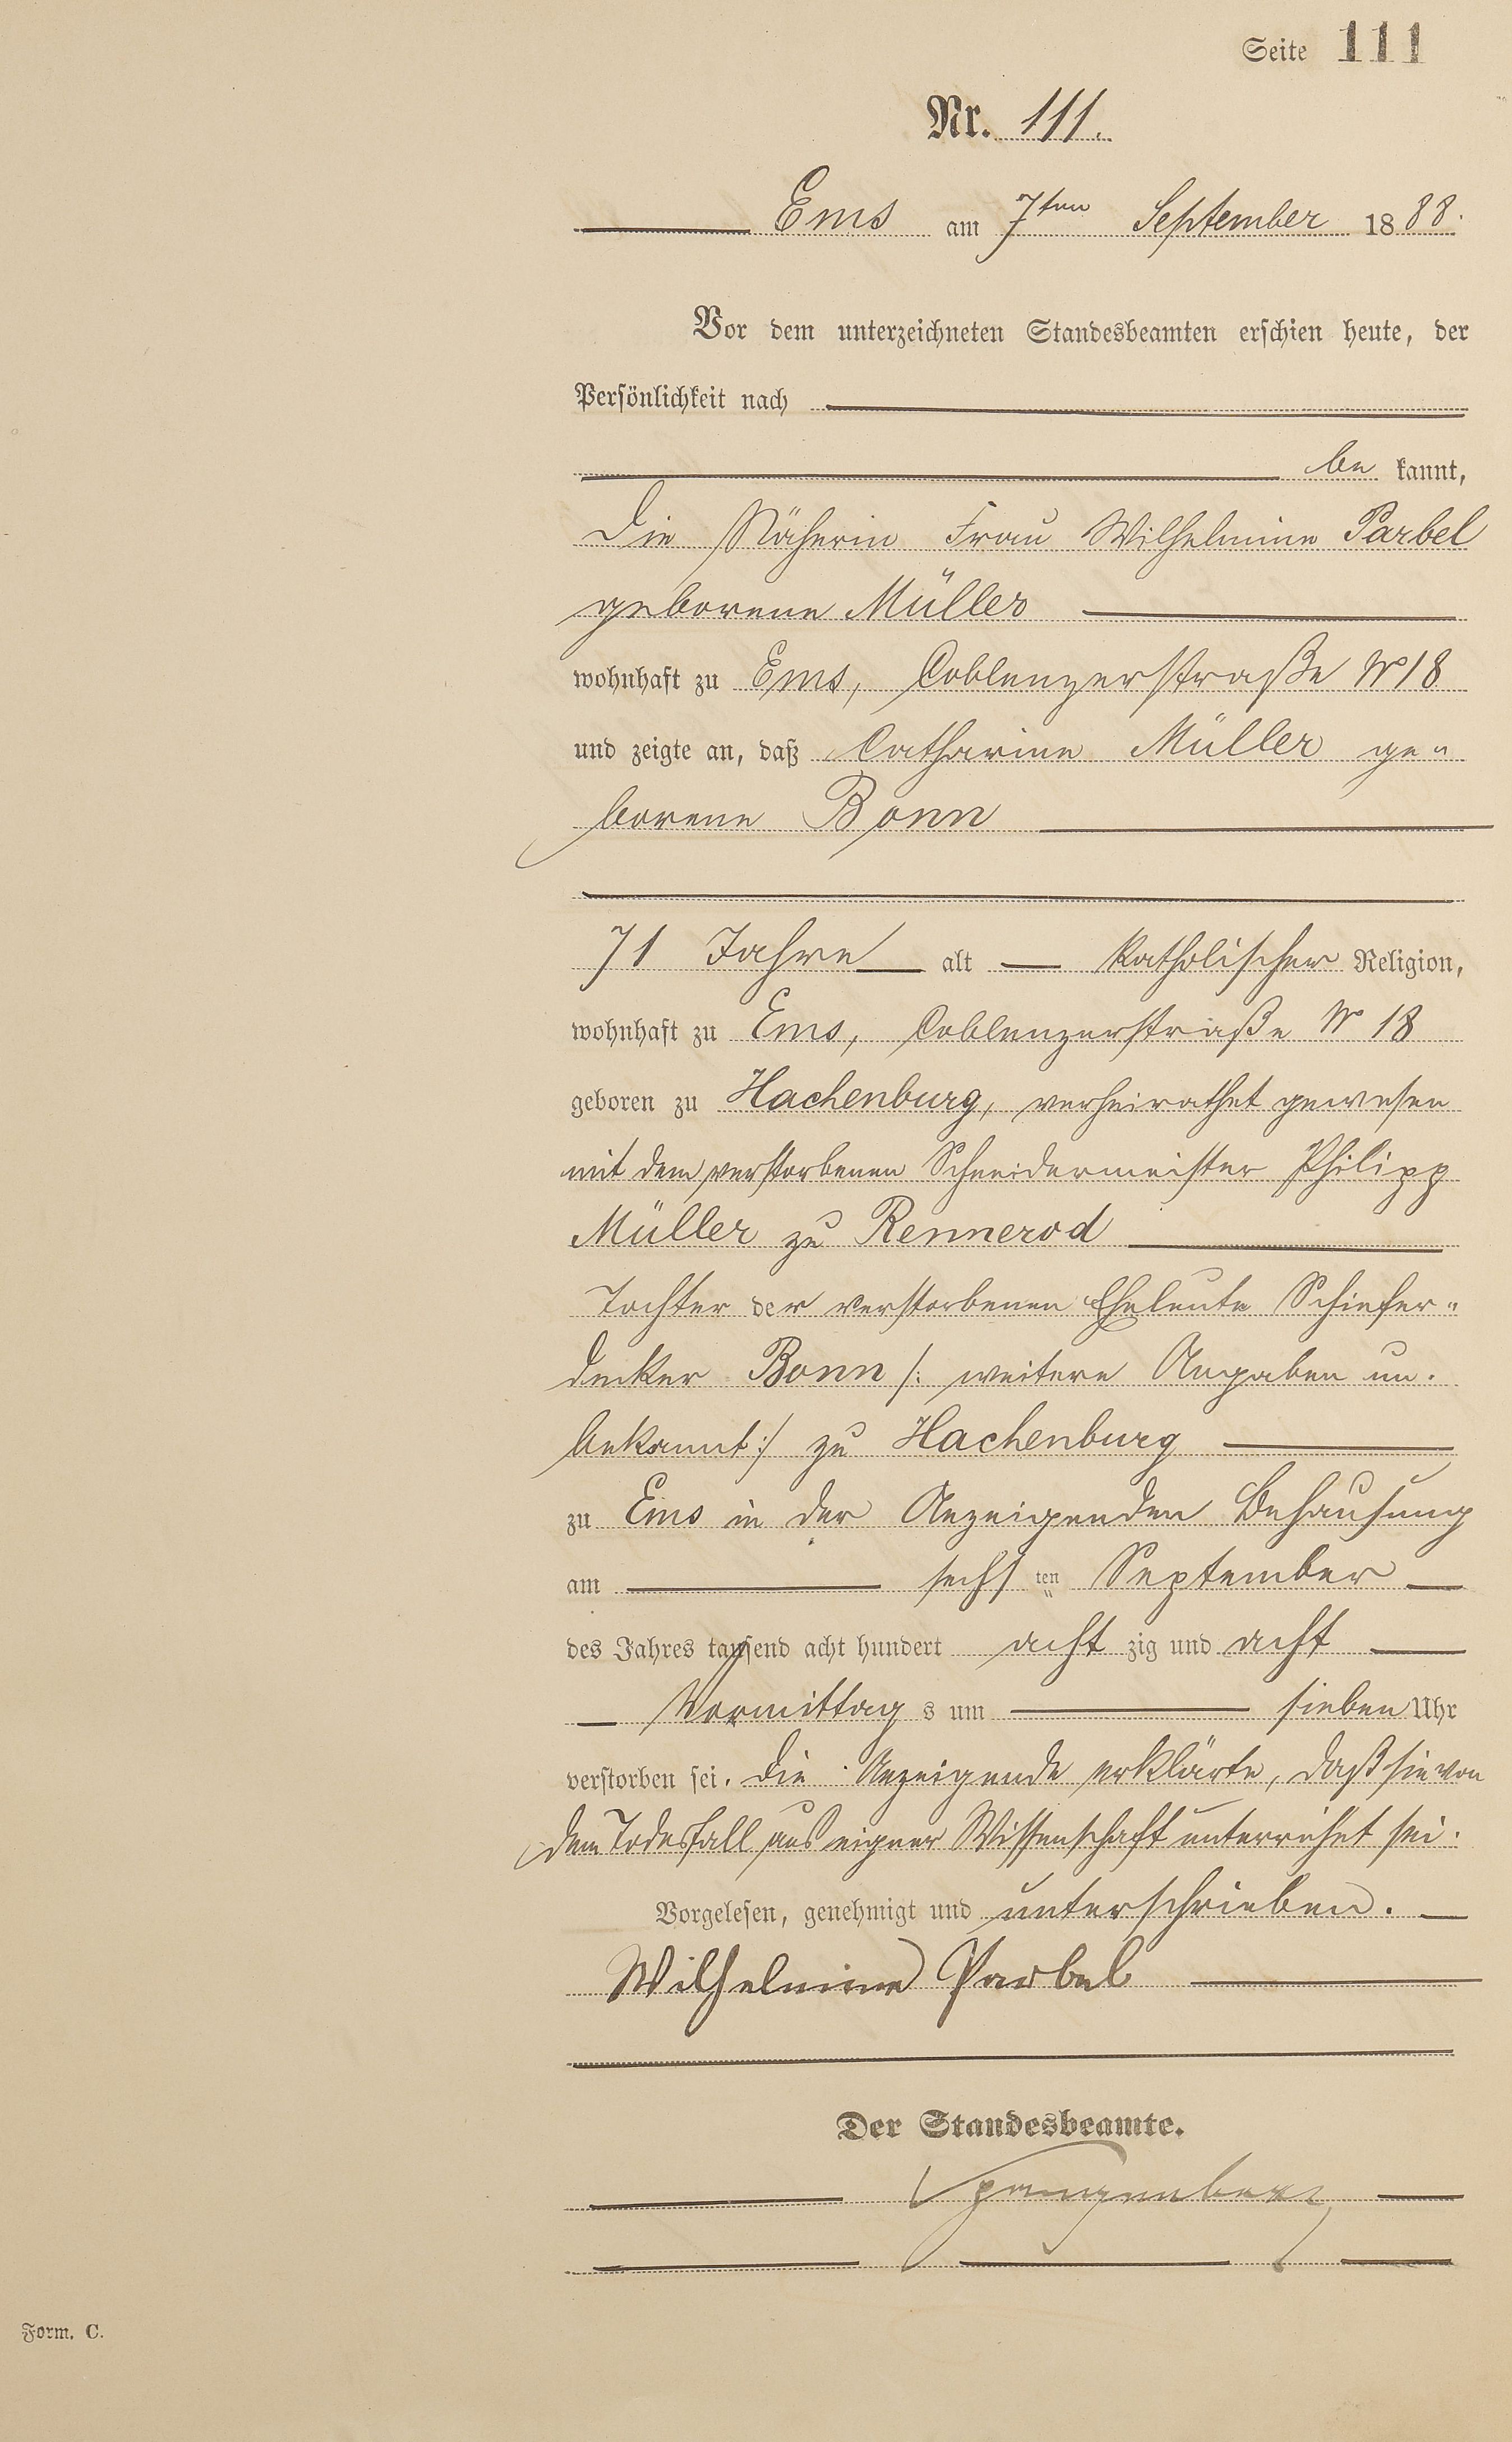 Seite 111
Nr. 111.
Ems am 7ten September 1888.
Vor dem unterzeichneten Standesbeamten erschien heute, der
Persönlichkeit nach
be kannt,
die Näherin Frau Wilhelmine Parbel
geborene Müller
wohnhaft zu Ems, Coblenzerstraße No 18
und zeigte an, daß Catharine Müller ge„
borene Bonn
71 Jahre alt katholischer Religion,
wohnhaft zu Ems, Coblenzerstraße No 18
geboren zu Hachenburg, verheirathet gewesen
mit dem verstorbenen Schneidermeister Philipp
Müller zu Rennerod
Tochter der verstorbenen Eheleute Schiefer„
decker Bonn /: weitere Angaben un.
bekannt :/ zu Hachenburg
zu Ems in der Anzeigenden Behausung
am sechsten September
des Jahres tausend acht hundert achtzig und acht
Vormittags um sieben Uhr
verstorben sei. Die Anzeigende erklärte, daß sie von
dem Todesfall aus eigner Wissenschaft unterrichtet sei.
Vorgelesen, genehmigt und unterschrieben.
Wilhelmine Parbel
Der Standesbeamte.
Spangenberg
Form. C.